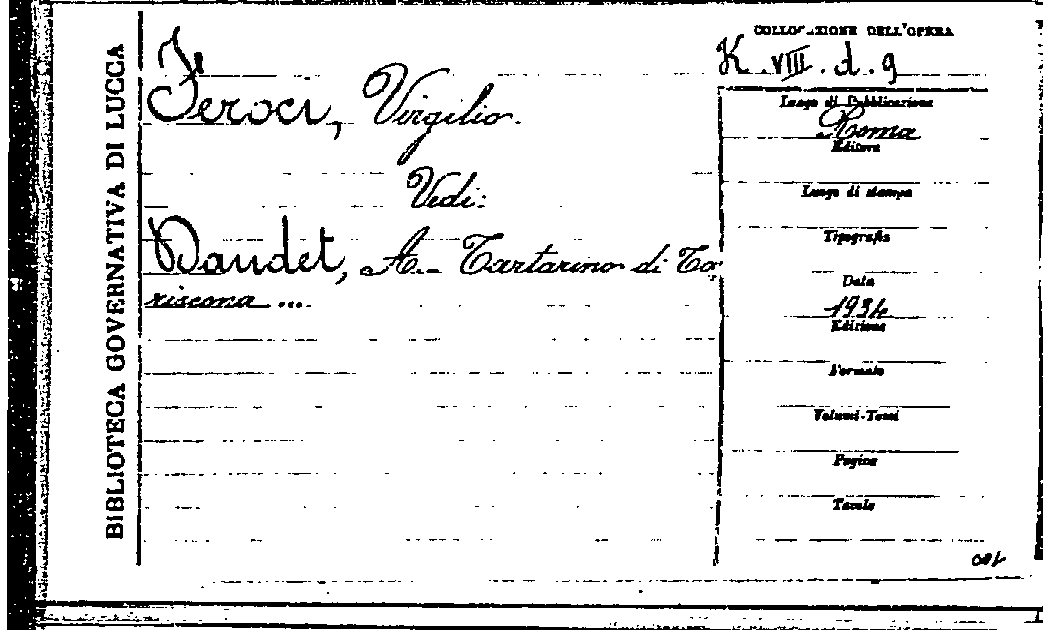 BIBLIOTECA GOVERNATIVA DI LUCCA
Feroci, Virgilio.
Vedi:
Daudet, A.- Tartarino di Ta
riscona ...
COLLOCAZIONE DELL'OPERA
K. VIII. d. 9
Luogo di Pubblicazione
Roma
Editore
Luogo di stampa
Tipografia
Data
1934
Edizione
Formato
Volumi-Tomi
Pagine
Tavole